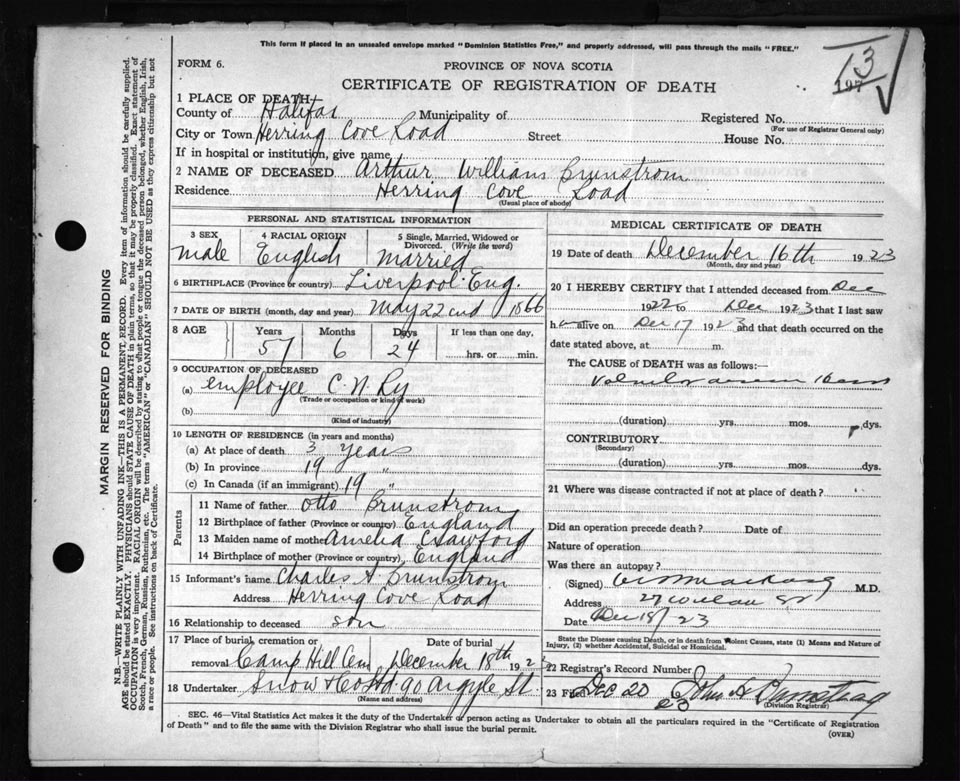 This form if placed in an unsealed envelope marked "Dominion Statistics Free," and properly addressed, will pass through the mails "FREE."
13
197
FORM 6.
PROVINCE OF NOVA SCOTIA
CERTIFICATE OF REGISTRATION OF DEATH
1 PLACE OF DEATH
County of Halifax Municipality of Registered No.
(For use of Registrar General only)
City or Town Herring Cove Road Street House No.
If in hospital or institution, give name
2 NAME OF DECEASED Arthur William Brunstrom
Residence Herring Cove Road
(Usual place of abode)
PERSONAL AND STATISTICAL INFORMATION
3 SEX 4 RACIAL ORIGIN 5 Single, Married, Widowed or Divorced. (Write the word)
male English Married
6 BIRTHPLACE (Province or country) Liverpool Eng.
7 DATE OF BIRTH (month, day and year) May 22nd 1866
8 AGE Years Months Days If less than one day,
57 6 24 hrs. or min.
9 OCCUPATION OF DECEASED
(a) employee C. N. Ry
(Trade or occupation or kind of work)
(b)
(Kind of industry)
10 LENGTH OF RESIDENCE (in years and months)
(a) At place of death 3 years
(b) In province 19 "
(c) In Canada (if an immigrant) 19 "
Parents
11 Name of father Otto Brunstrom
12 Birthplace of father (Province or country) England
13 Maiden name of mother Amelia Crawford
14 Birthplace of mother (Province or country) England
15 Informant's name Charles A. Brunstrom
Address Herring Cove Road
16 Relationship to deceased son
17 Place of burial, cremation or Date of burial
removal Camp Hill Cem December 18th 1923
18 Undertaker Snow & Co Ltd 90 Argyle St.
(Name and address)
MEDICAL CERTIFICATE OF DEATH
19 Date of death December 16th 1923
(Month, day and year)
20 I HEREBY CERTIFY that I attended deceased from Dec
1922 to Dec 1923 that I last saw
h alive on Dec 17 1923 and that death occurred on the
date stated above, at m.
The CAUSE of DEATH was as follows:—
(duration) yrs. mos. dys.
CONTRIBUTORY
(Secondary)
(duration) yrs. mos. dys.
21 Where was disease contracted if not at place of death?
Did an operation precede death? Date of
Nature of operation
Was there an autopsy?
(Signed) M.D.
Address 27
Date Dec 18/23
State the Disease causing Death, or in death from Violent Causes, state (1) Means and Nature of
Injury, (2) whether Accidental, Suicidal or Homicidal.
22 Registrar's Record Number
23 Filed Dec 20 23 John A
(Division Registrar)
SEC. 46—Vital Statistics Act makes it the duty of the Undertaker or person acting as Undertaker to obtain all the particulars required in the "Certificate of Registration
of Death" and to file the same with the Division Registrar who shall issue the burial permit.
(OVER)
MARGIN RESERVED FOR BINDING
N.B.—WRITE PLAINLY WITH UNFADING INK—THIS IS A PERMANENT RECORD. Every item of information should be carefully supplied.
AGE should be stated EXACTLY. PHYSICIANS should STATE CAUSE OF DEATH in plain terms, so that it may be properly classified. Exact statement of
OCCUPATION is very important. RACIAL ORIGIN will be described by stating to what people or tongue the deceased person belonged, whether English, Irish,
Scotch, French, German, Russian, Ruthenian, etc. The terms "AMERICAN" or "CANADIAN" SHOULD NOT BE USED as they express citizenship but not
a race or people. See instructions on back of Certificate.